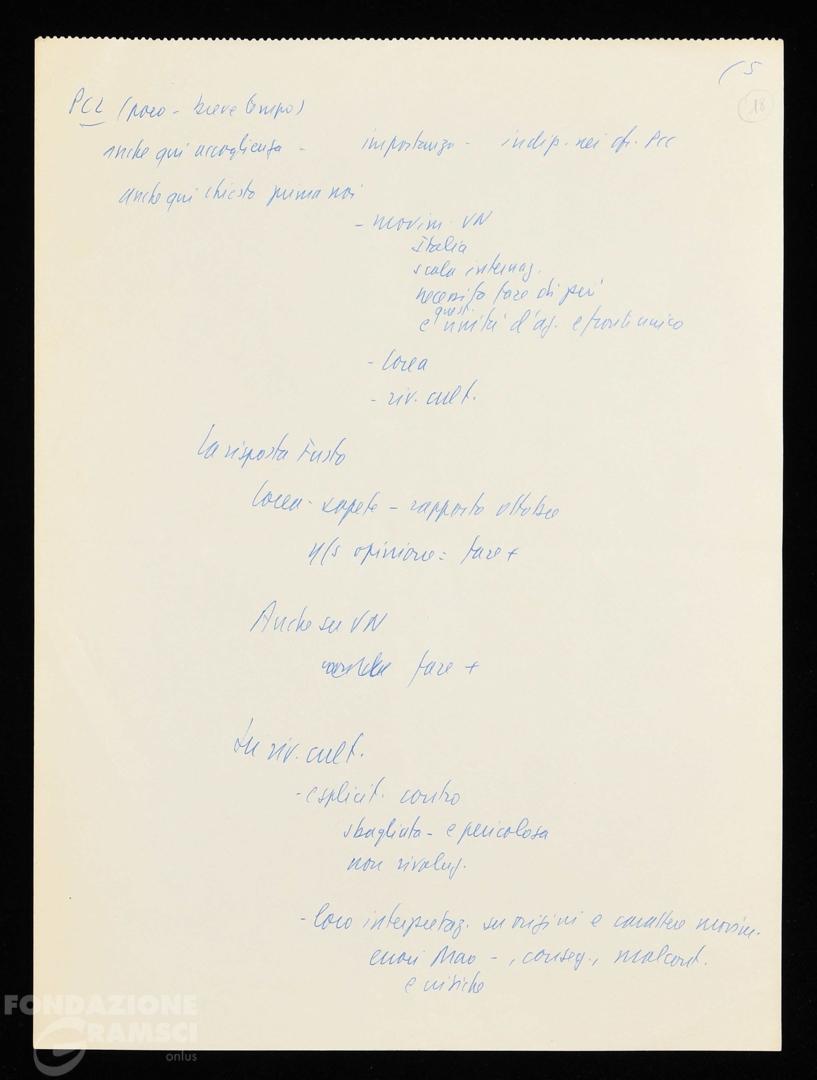 (5
18
PCC (poco - breve tempo)
anche qui accoglienza - importanza - indip. nei cfr. PCC
anche qui chiesto prima noi
- movim. VN
Italia
scala internaz.
necessità fare di più
questi
e unità d'az. e fronte unico
- Corea
- riv. cult.
La risposta
Corea - sapete - rapporto ottobre
n/s opinione = fare +
Anche su VN
fare +
Su riv. cult.
- esplicit. contro
sbagliata - e pericolosa
non rivoluz.
- loro interpretaz. su origini e carattere movim.
errori Mao - , conseg., malcont.
e critiche
FONDAZIONE
GRAMSCI
onlus